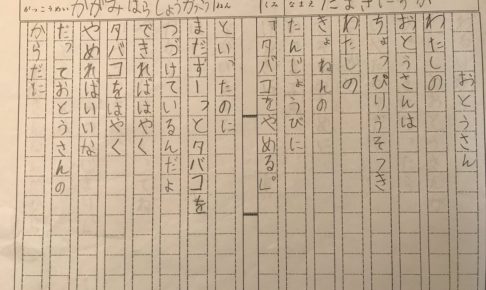 くみ なまえ
がっこうめい かがみはらしょうがっこう ねん
おとうさん
わたしの
おとうさんは
ちょっぴりうそつき
わたしの
きょねんの
たんじょうびに
「タバコをやめる。」
といったのに
まだずーっとタバコを
つづけているんだよ
できればはやく
タバコをはやく
やめればいいな
だっておとうさんの
からだに